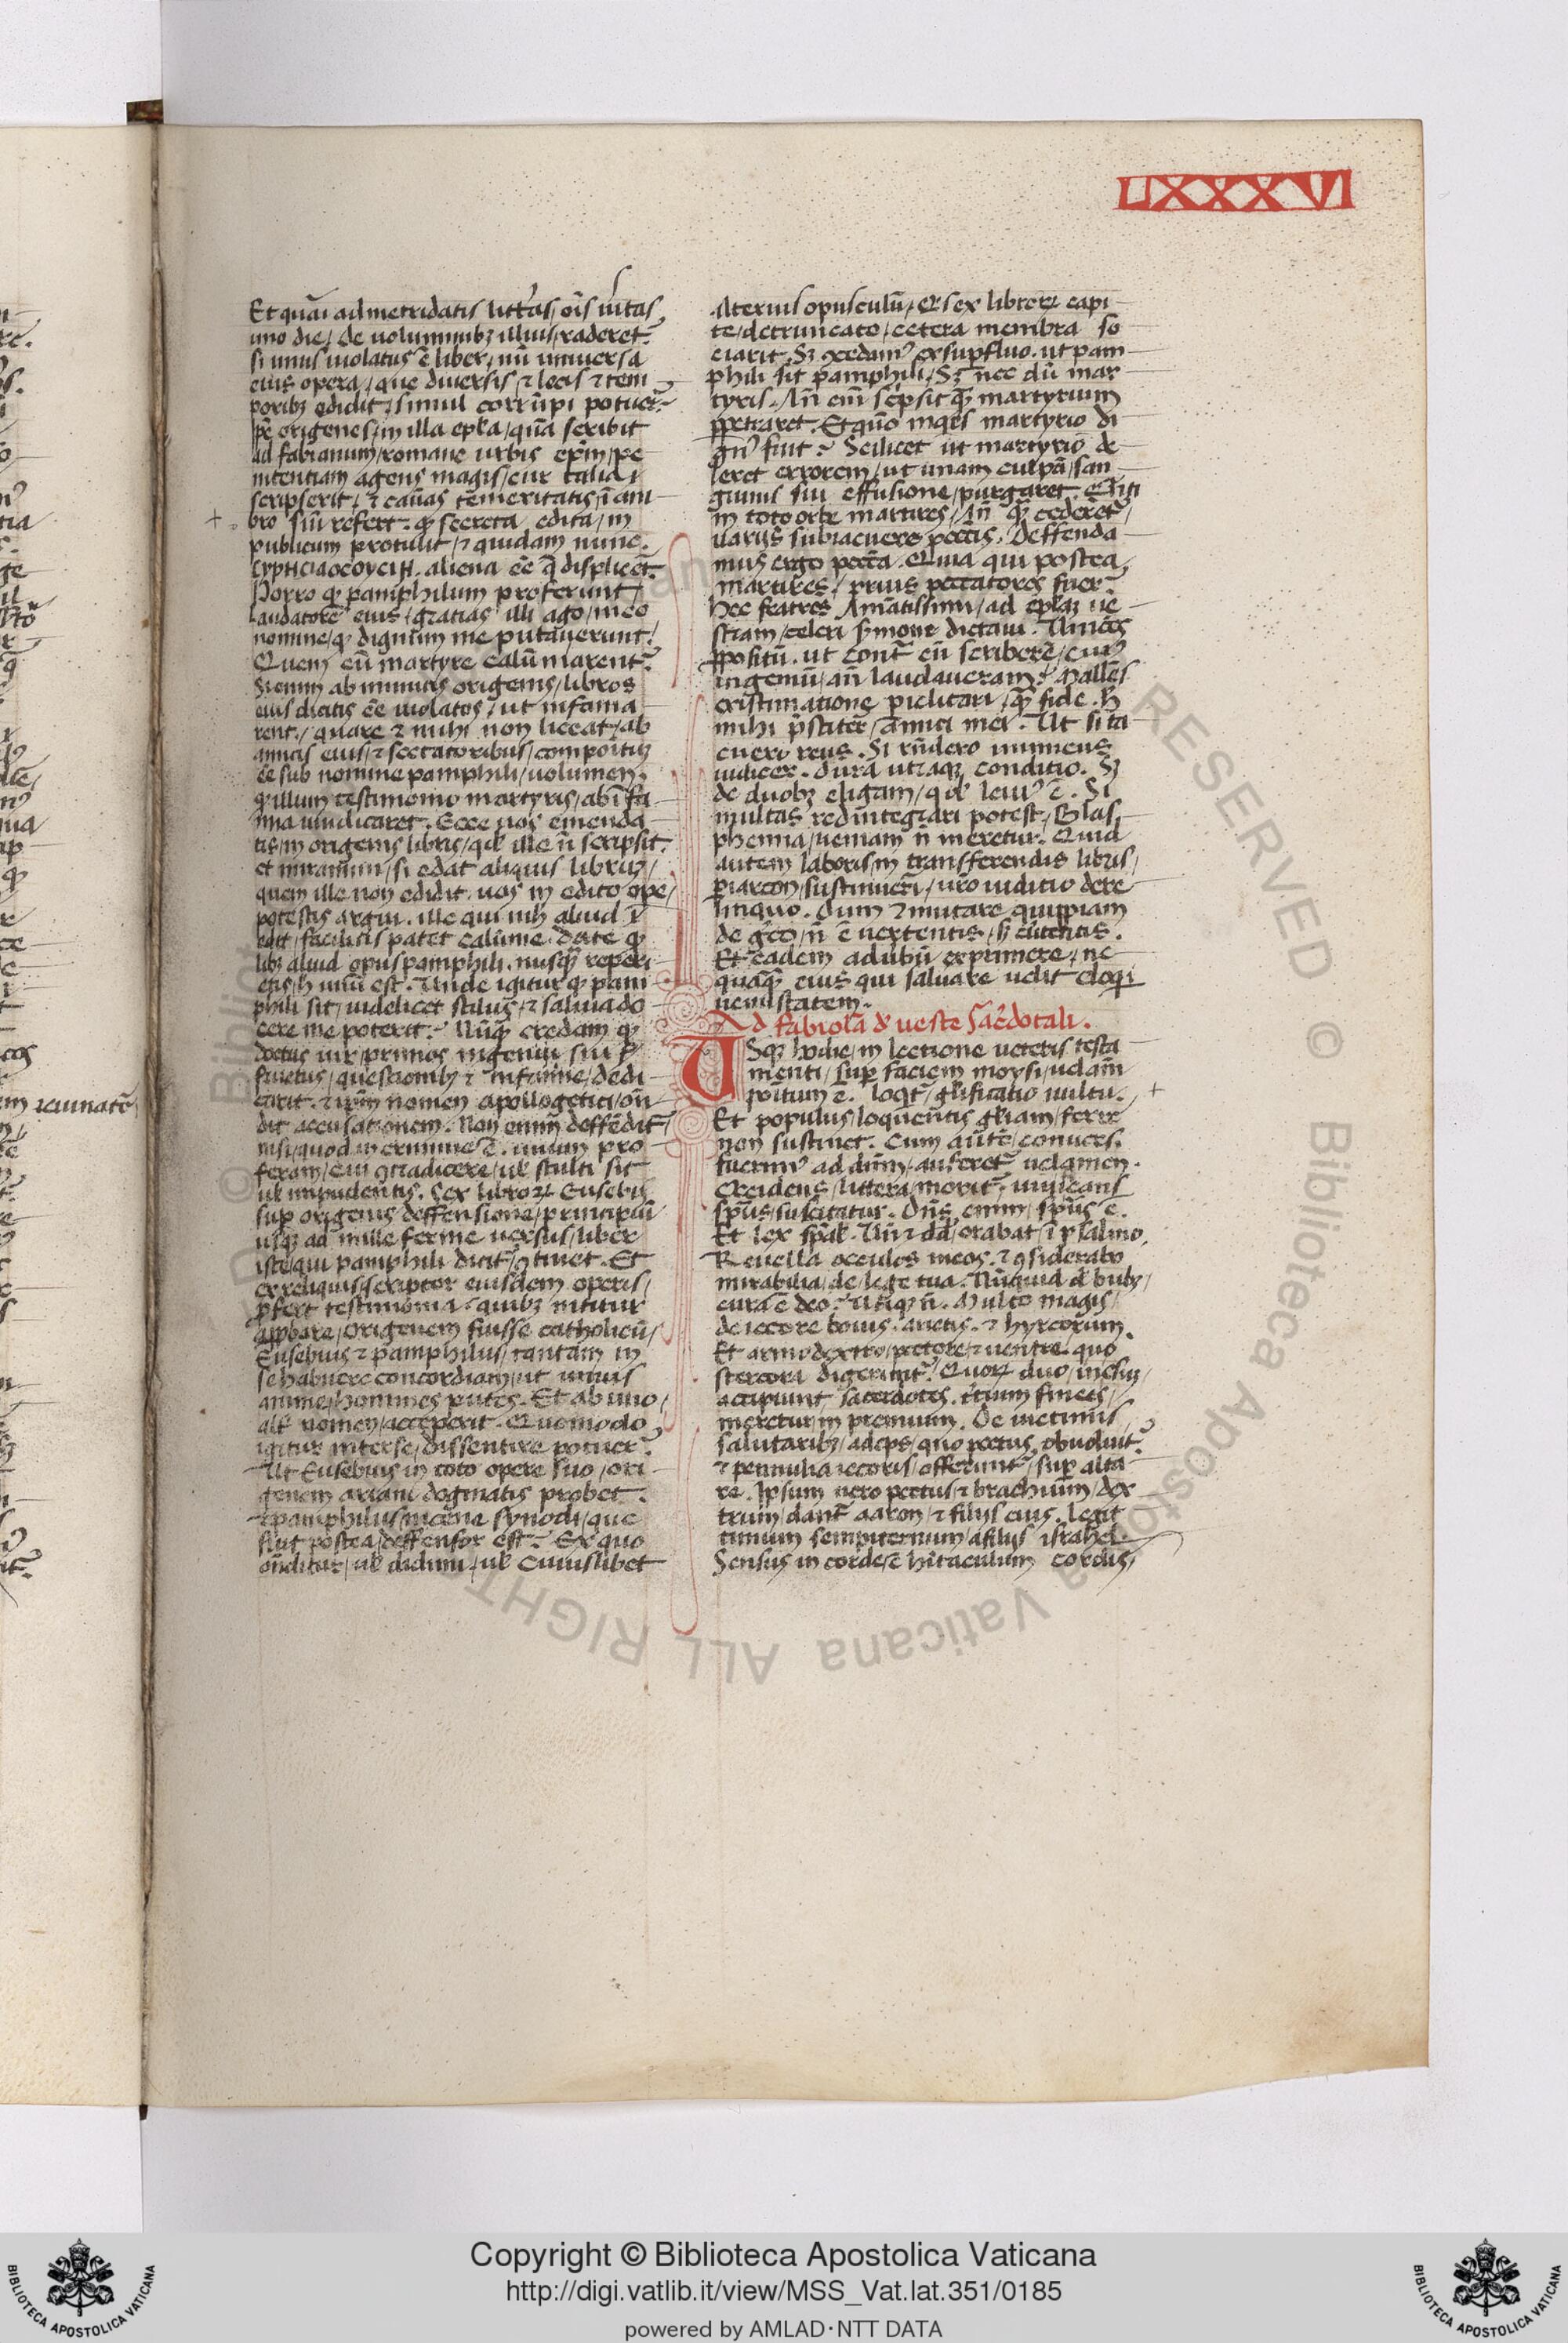 LXXXVI
Et quāi ad metridatis litt'as, oīs ūitas,
uno die, de uoluminibꝫ illius, raderet᷑.
si unus uiolatus ē liber, nū uniuersa
eius opera, que diuersis, ⁊ locis ⁊ tem
poribꝫ edidit, simul corrūpi potuer᷑.
Ip̄e origenes, in illa ep̄ła, quā scribit
ad fabianum, romane urbis ep̄m, pe
nitentiam agens magis, cur talia
scripserit, ⁊ cāūas tēmeritatis, ī am
bro siū refert. ꝙ secreta edita, in
publicum protulit, ⁊ quidam nunc.
aliena ēē q̄ displicēt.
Porro ꝙ pamphilum proferunt,
laudatorē eius, gratias illi ago, meo
nomine, ꝙ dignum me putauerunt,
Quem cū martyre calūniarent᷑.
Si enim ab inimicis origenis, libros
eius dicitis ēē uiolatos, ut infama
rent᷑, quare ⁊ mihi non liceat, ab
amicis eius, ⁊ sectatoribus, compoītū
ēē sub nomine pamphili, uolumen.
ꝙ illum testimonio martyris, ab ī fa
mia uindicaret. Ecce uos emenda
tis, in origenis libris, qđ ille n̄ scripsit.
et miramini, si edat aliquis librū,
quem ille non edidit. uos in edito ope,
potestis argui. ille qui nih̄ aliud ī
edit, facilius patet calūnie. date ꝙ
libꝫ aliud opus pamphili. nusꝙ̄ reperi
etis, h̄ unū est. Unde igitur ꝙ pam
phili sit, uidelicet stilus, ⁊ saliua do
cere me poterit. Nūꝙ̄ credam ꝙ
doctus uir, primos ingenij sui
fructus, questionibꝫ ⁊ infamie, dedi
carit. ⁊ ip̄m nomen apollogetici, on̄
dit accusationem. Non enim deffēdit᷑,
nisi, quod in crimine ē. unum pro
feram, cui ꝯtradicere, uł stulti sit
uł impudentis. Sex librorꝝ Eusebij
sup origenis deffensione, principiū
usꝙ ad mille ferme uersus, liber
iste, qui pamphili dicit᷑, ꝯtinet. Et
ex reliquis, scriptor eiusdem operis,
ꝓfert testimonia. quibꝫ nititur
apꝓbare, origenem fuisse catholicū,
Eusebius ⁊ pamphilus, tantam in
se habuere concordiam, ut unius
anime, homines putes. Et ab uno,
alť nomen, acceperit. Quomodo
igitur inter se, dissentire potuer᷑.
Ut Eusebius in toto opere suo, ori
genem ariani dogmatis probet.
⁊ pamphilus, nicene synodi, que
fuit postea, deffensor est. Ex quo
on̄ditur, uł didimi, uł cuiuslibet
Alterius opusculū, Q sex librorꝝ capi
te, detruncato, cetera membra so
ciarit. Sꝫ ꝯcedamꝰ ex supfluo. ut pam
phili sit pamphili, Sꝫ nec dū mar
tyris. Añ eiñ scrp̄sit ꝙ̄ martyrium
ꝑpetraret. Et quō inq̄es martyrio di
gnꝰ fuit. Scilicet ut martyrio de
leret errorem, ut unam culpā, san
guinis sui effusione, purgaret. Q̄nti
in toto orbe martires, Añ ꝙ cederēt᷑,
uarijs subiacuere pcctīs. Deffenda
mus ergo pcctā. Quia qui postea,
martires, prius peccatores fuer᷑.
Hec fratres Amātissimi, ad epłaꝫ ue
stram, celeri ẜmone dictaui. Uincēs
ꝓpositū. ut cont᷑ eū scriberē, cuiꝰ
ingeniū, añ laudaueram. Mallēs
existimatione piclitari, ꝙ̄ fide. h̄
mihi p̄stiter̄, amici mei. Ut si ta
cuero reus. Si rn̄dero inimicus
iudicer. Dura utraꝙ conditio. Sꝫ
de duobꝫ eligam, qđ leuiꝰ ē. Si
multas redintegrari potest, Blas
phemia, ueniam n̄ meretur. Quid
autem laboris, in transferendis libris,
periarcon, sustinueri, uro iudicio dere
linquo. Dum ⁊ mutare quippiam
de greco, n̄ ē uertentis, ẜ euertentis.
Et eadem ad ubū exprimere, ne
quaꝙ̄ eius qui saluare uelit eloqi
uenustatem.
Ad fabiolā de ueste sac̄dotali.
Usꝙ hodie, in lectione ueteris testa
menti, sup faciem moysi, uelam̄
poītum ē. loqt᷑, głificatio uultu.
Et populus, loquentis głiam, ferre
non sustinet. Cum aūtē, conuersi
fuerimꝰ ad dūm, auferet᷑ uelamen.
Occidens, littera, morit᷑, uiuificans
sp̄us, suscitatur. Dn̄s, enim, sp̄us ē.
Et lex sp̄ał. Uñ ⁊ dd̄, orabat, ī psalmo.
Reuella occulos meos. ⁊ ꝯsiderabo
mirabilia, de lege tua. Nunquid đ bubꝫ,
cura ē deo. Utiꝙ n̄. Multo magis,
de iecore bouis. arietis. ⁊ hyrcorum.
Et armo dextro, pectore, ⁊ uentre. quo
stercora digerunt᷑. Quorꝝ duo, in esū,
accipiunt sacerdotes. t̄tium finees,
meretur, in premium. De uictimis
salutaribꝫ, adeps, quo pectus, obuoluit᷑.
⁊ pennulia iecoris, offerunt᷑, sup alta
re. Ipsum uero pectus, ⁊ brachium, dex
trum, dant᷑ aaron, ⁊ filijs eius. Legit
timum sempiternum, a filijs israhel.
Sensus in corde, ē hītaculum cordis,
Copyright © Biblioteca Apostolica Vaticana
http://digi.vatlib.it/view/MSS_Vat.lat.351/0185
powered by AMLAD·NTT DATA
BIBLIOTECA APOSTOLICA VATICANA
BIBLIOTECA APOSTOLICA VATICANA